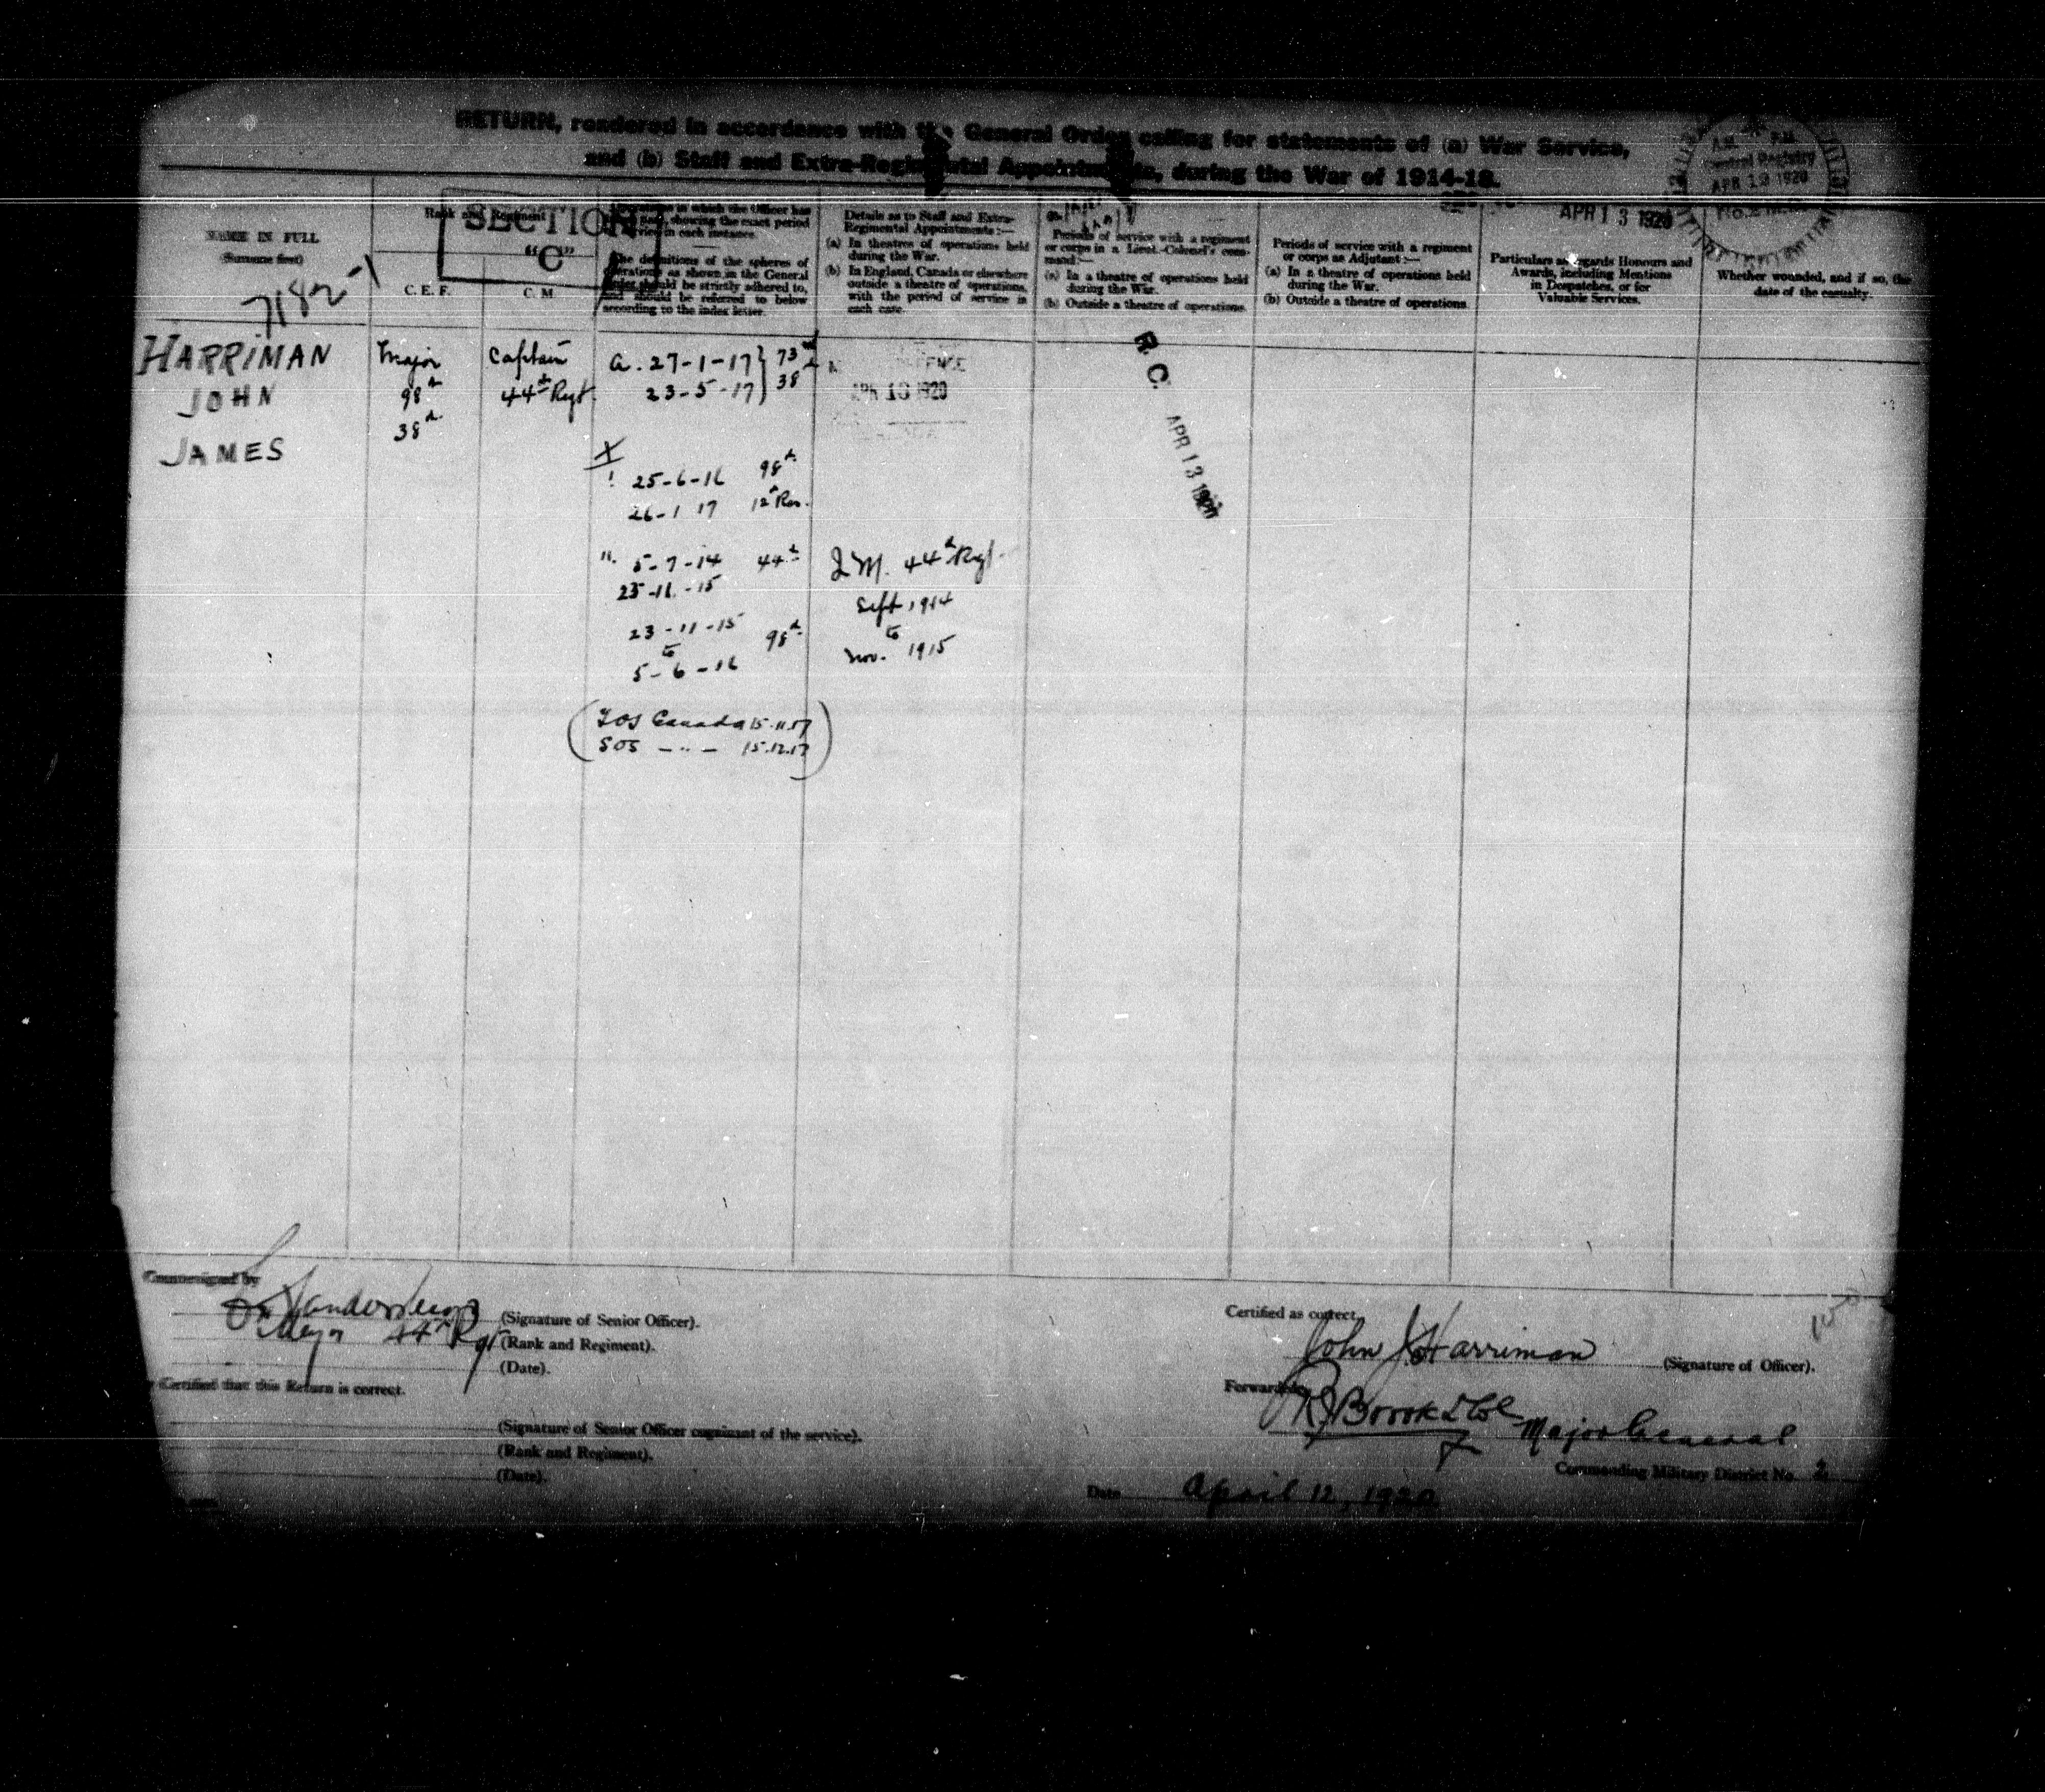 RETURN, rendered in accordance with the General Order calling for statements of (a) War Service,
and (b) Staff and Extra-Regimental Appointments, during the War of 1914-18.
A.M. P.M.
Central Registry
APR 13 1920
APR 13 1920
NAME IN FULL
(Surname first)
7182-1
Rank and Regiment
C. E. F.
C. M.
SECTION
"C"
in which the Officer has
showing the exact period
service in each instance.
The definitions of the spheres of
operations as shown in the General
Order should be strictly adhered to,
and should be referred to below
according to the index letter.
Details as to Staff and Extra-
Regimental Appointments:—
(a) In theatres of operations held
during the War.
(b) In England, Canada or elsewhere
outside a theatre of operations,
with the period of service in
each case.
Periods of service with a regiment
or corps in a Lieut.-Colonel's com-
mand:—
(a) In a theatre of operations held
during the War.
(b) Outside a theatre of operations.
Periods of service with a regiment
or corps as Adjutant:—
(a) In a theatre of operations held
during the War.
(b) Outside a theatre of operations.
Particulars as regards Honours and
Awards, including Mentions
in Despatches, or for
Valuable Services.
Whether wounded, and if so, the
date of the casualty.
HARRIMAN
JOHN
JAMES
Major
98th
38th
Captain
44th Regt.
a. 27-1-17 } 73rd
23-5-17 } 38th
APR 13 1920
R. C.
APR 13 1920
X
! 25-6-16 98th
26-1 17 12th Res.
11. 5-7-14 44th
23-11-15
23-11-15
to 98th
5-6-16
Q M. 44th Regt.
Sept 1914
to
Nov. 1915
(TOS Canada 15.11.17
SOS —"— 15.12.17)
Countersigned by
(Signature of Senior Officer).
Major 44th Rgt
(Rank and Regiment).
(Date).
Certified that this Return is correct.
(Signature of Senior Officer cognizant of the service).
(Rank and Regiment).
(Date).
Certified as correct,
John J. Harriman
(Signature of Officer).
Forwarded
Brook Lt Col
f Major General
Commanding Military District No. 2
Date April 12, 1920